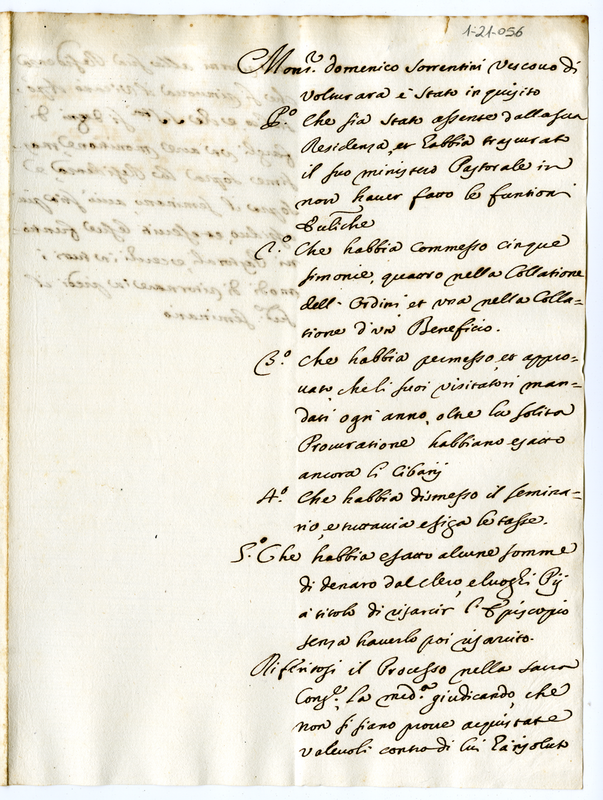 1-21-056
Mons.r domenico Sorrentini Vescovo di
Volturara è stato inquisito
P.o Che sia stato assente dalla sua
Residenza, et habbia trascurato
il suo ministero Pastorale in
non haver fatto le funtioni
Publiche
2.o Che habbia commesso cinque
simonie, quattro nella Collatione
dell' Ordini et una nella Colla-
tione d'un Beneficio.
3.o Che habbia permesso, et appro-
vato che li suoi visitatori man-
dati ogni anno, oltre la solita
Procuratione habbiano esatto
ancora li Cibarij
4.o Che habbia dismesso il semina-
rio, e tuttavia esiga le tasse.
5.o Che habbia esatto alcune somme
di denaro dal clero, e luoghi Pij
à titolo di risarcir l'Episcopio
senza haverlo poi risarcito.
Riferitosi il Processo nella sacra
Cong.e la med.a giudicando, che
non si siano prove acquistate
valevoli contro di lui l'hà risoluto